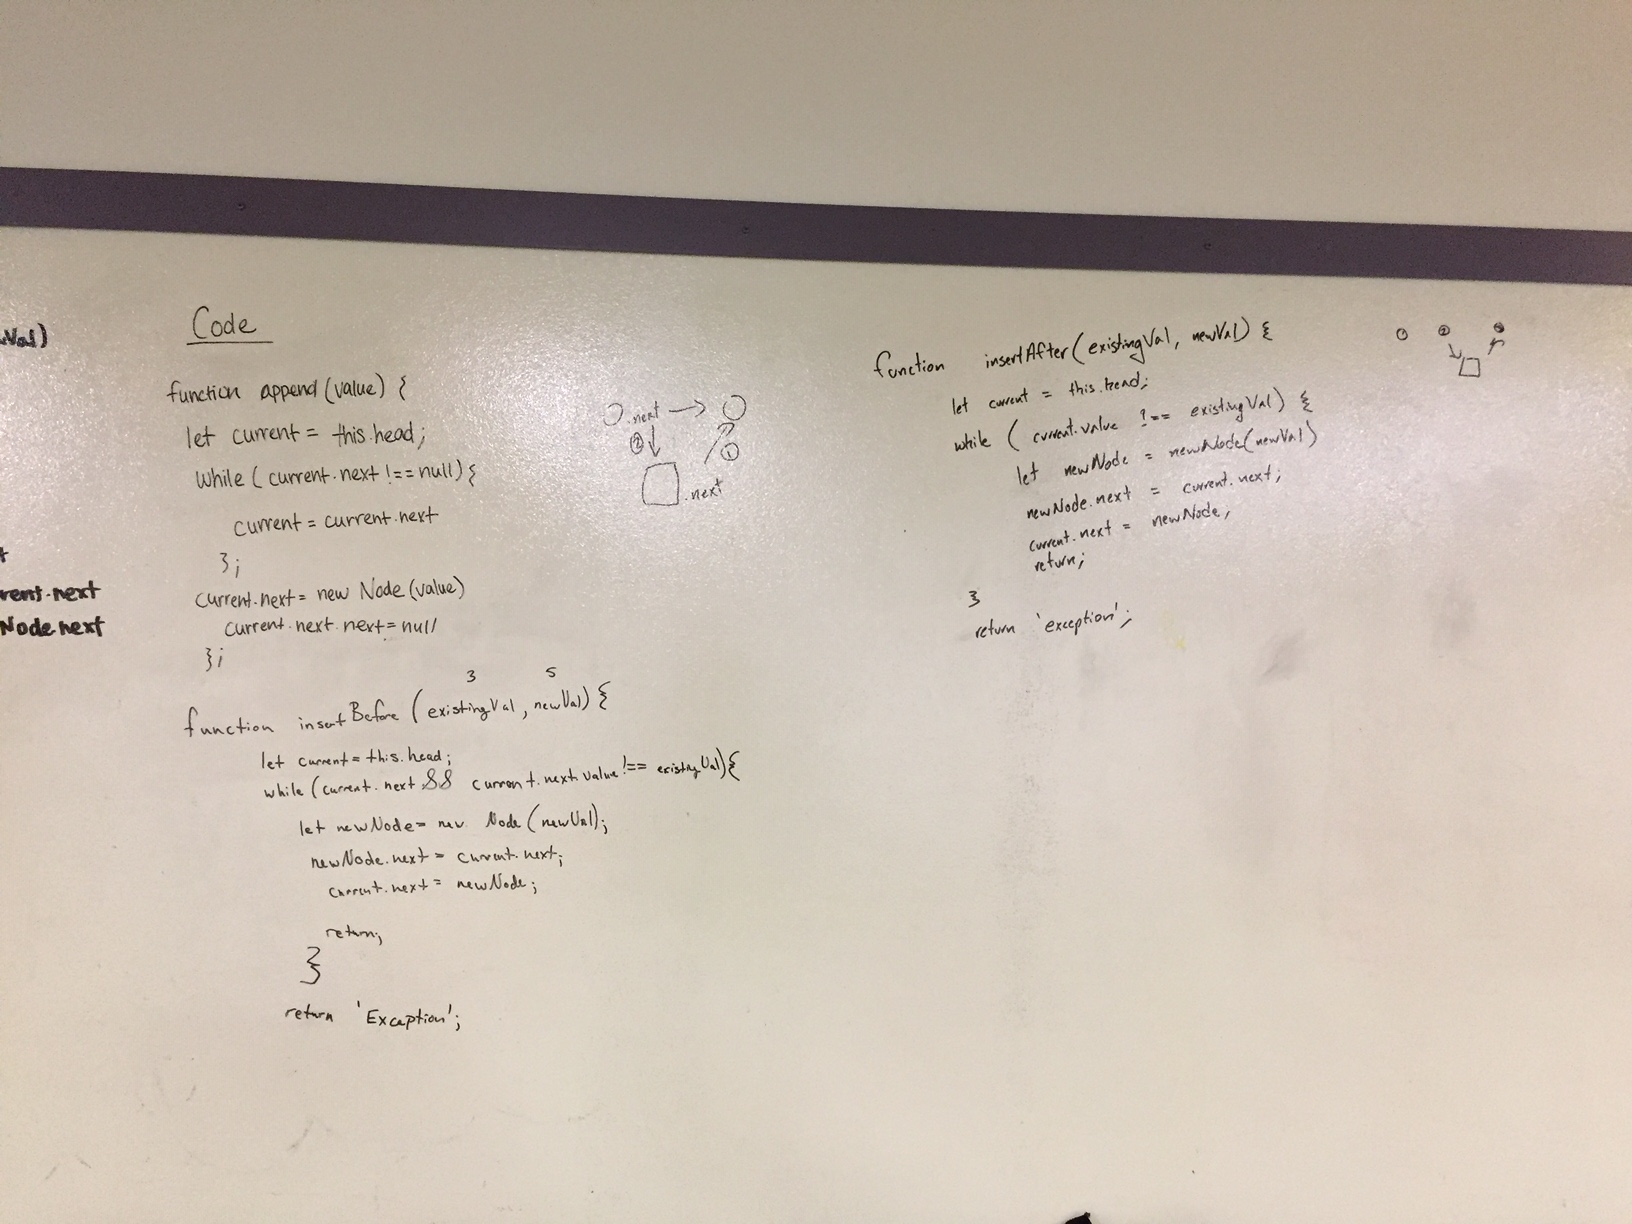 wVal)
t
rent.next
Node.next
Code
function append(value) {
let current = this.head;
while (current.next !== null) {
current = current.next
};
current.next = new Node(value)
current.next.next = null
};
.next
2
1
.next
3 5
function insertBefore (existingVal, newVal) {
let current = this.head;
while (current.next && current.next.value !== existingVal) {
let newNode = new Node (newVal);
newNode.next = current.next;
current.next = newNode;
return;
}
return 'Exception';
function insertAfter (existingVal, newVal) {
let current = this.head;
while ( current.value !== existingVal) {
let newNode = newNode(newVal)
newNode.next = current.next;
current.next = newNode,
return;
}
return 'exception';
1 2 3